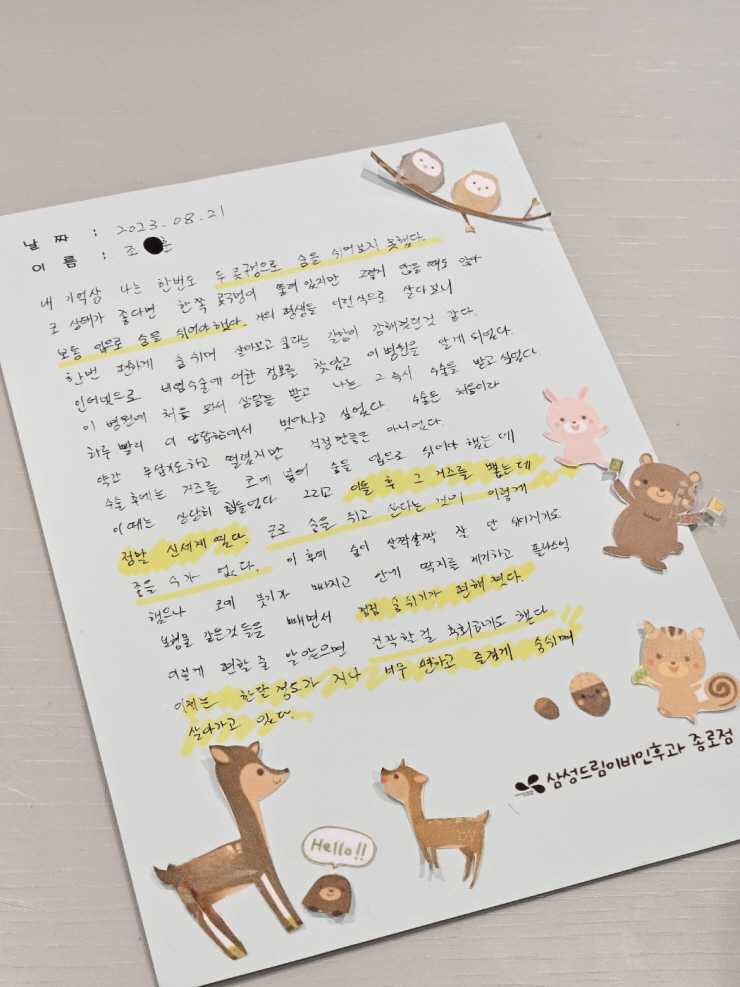 날 짜 : 2023.08.21
이 름 : 조 훈
내 기억상 나는 한번도 두 콧구멍으로 숨을 쉬어보지 못했다.
코 상태가 좋다면 한쪽 콧구멍이 뚫려 있지만 그렇지 않을 때도 있어
보통 입으로 숨을 쉬어야 했다. 거의 평생을 이런 식으로 살다보니
한번 편하게 숨 쉬며 살아보고 싶다는 갈망이 강해졌던것 같다.
인터넷으로 비염수술에 대한 정보를 찾았고 이 병원을 알게 되었다.
이 병원에 처음 와서 상담을 받고 나는 그 즉시 수술을 받고 싶었다.
하루 빨리 이 답답함에서 벗어나고 싶었다. 수술은 처음이라
약간 무섭기도하고 떨렸지만 걱정만큼은 아니었다.
수술 후에는 거즈를 코에 넣어 숨을 입으로 쉬어야 했는데
이때는 상당히 힘들었다 그리고 이틀 후 그 거즈를 뽑는데
정말 신세계였다. 코로 숨을 쉬고 산다는 것이 이렇게
좋을 수가 없다. 이 후에 숨이 살짝살짝 잘 안 쉬어지기도
했으나 코에 붓기가 빠지고 안에 딱지를 제거하고 플라스틱
보형물 같은것 들을 빼면서 점점 숨쉬기가 편해졌다.
이렇게 편할 줄 알았으면 진작할걸 후회하기도 했다
이제는 한달 정도가 지나 너무 편하고 즐겁게 숨쉬며
살아가고 있다.
삼성드림이비인후과 종로점
Hello!!
by